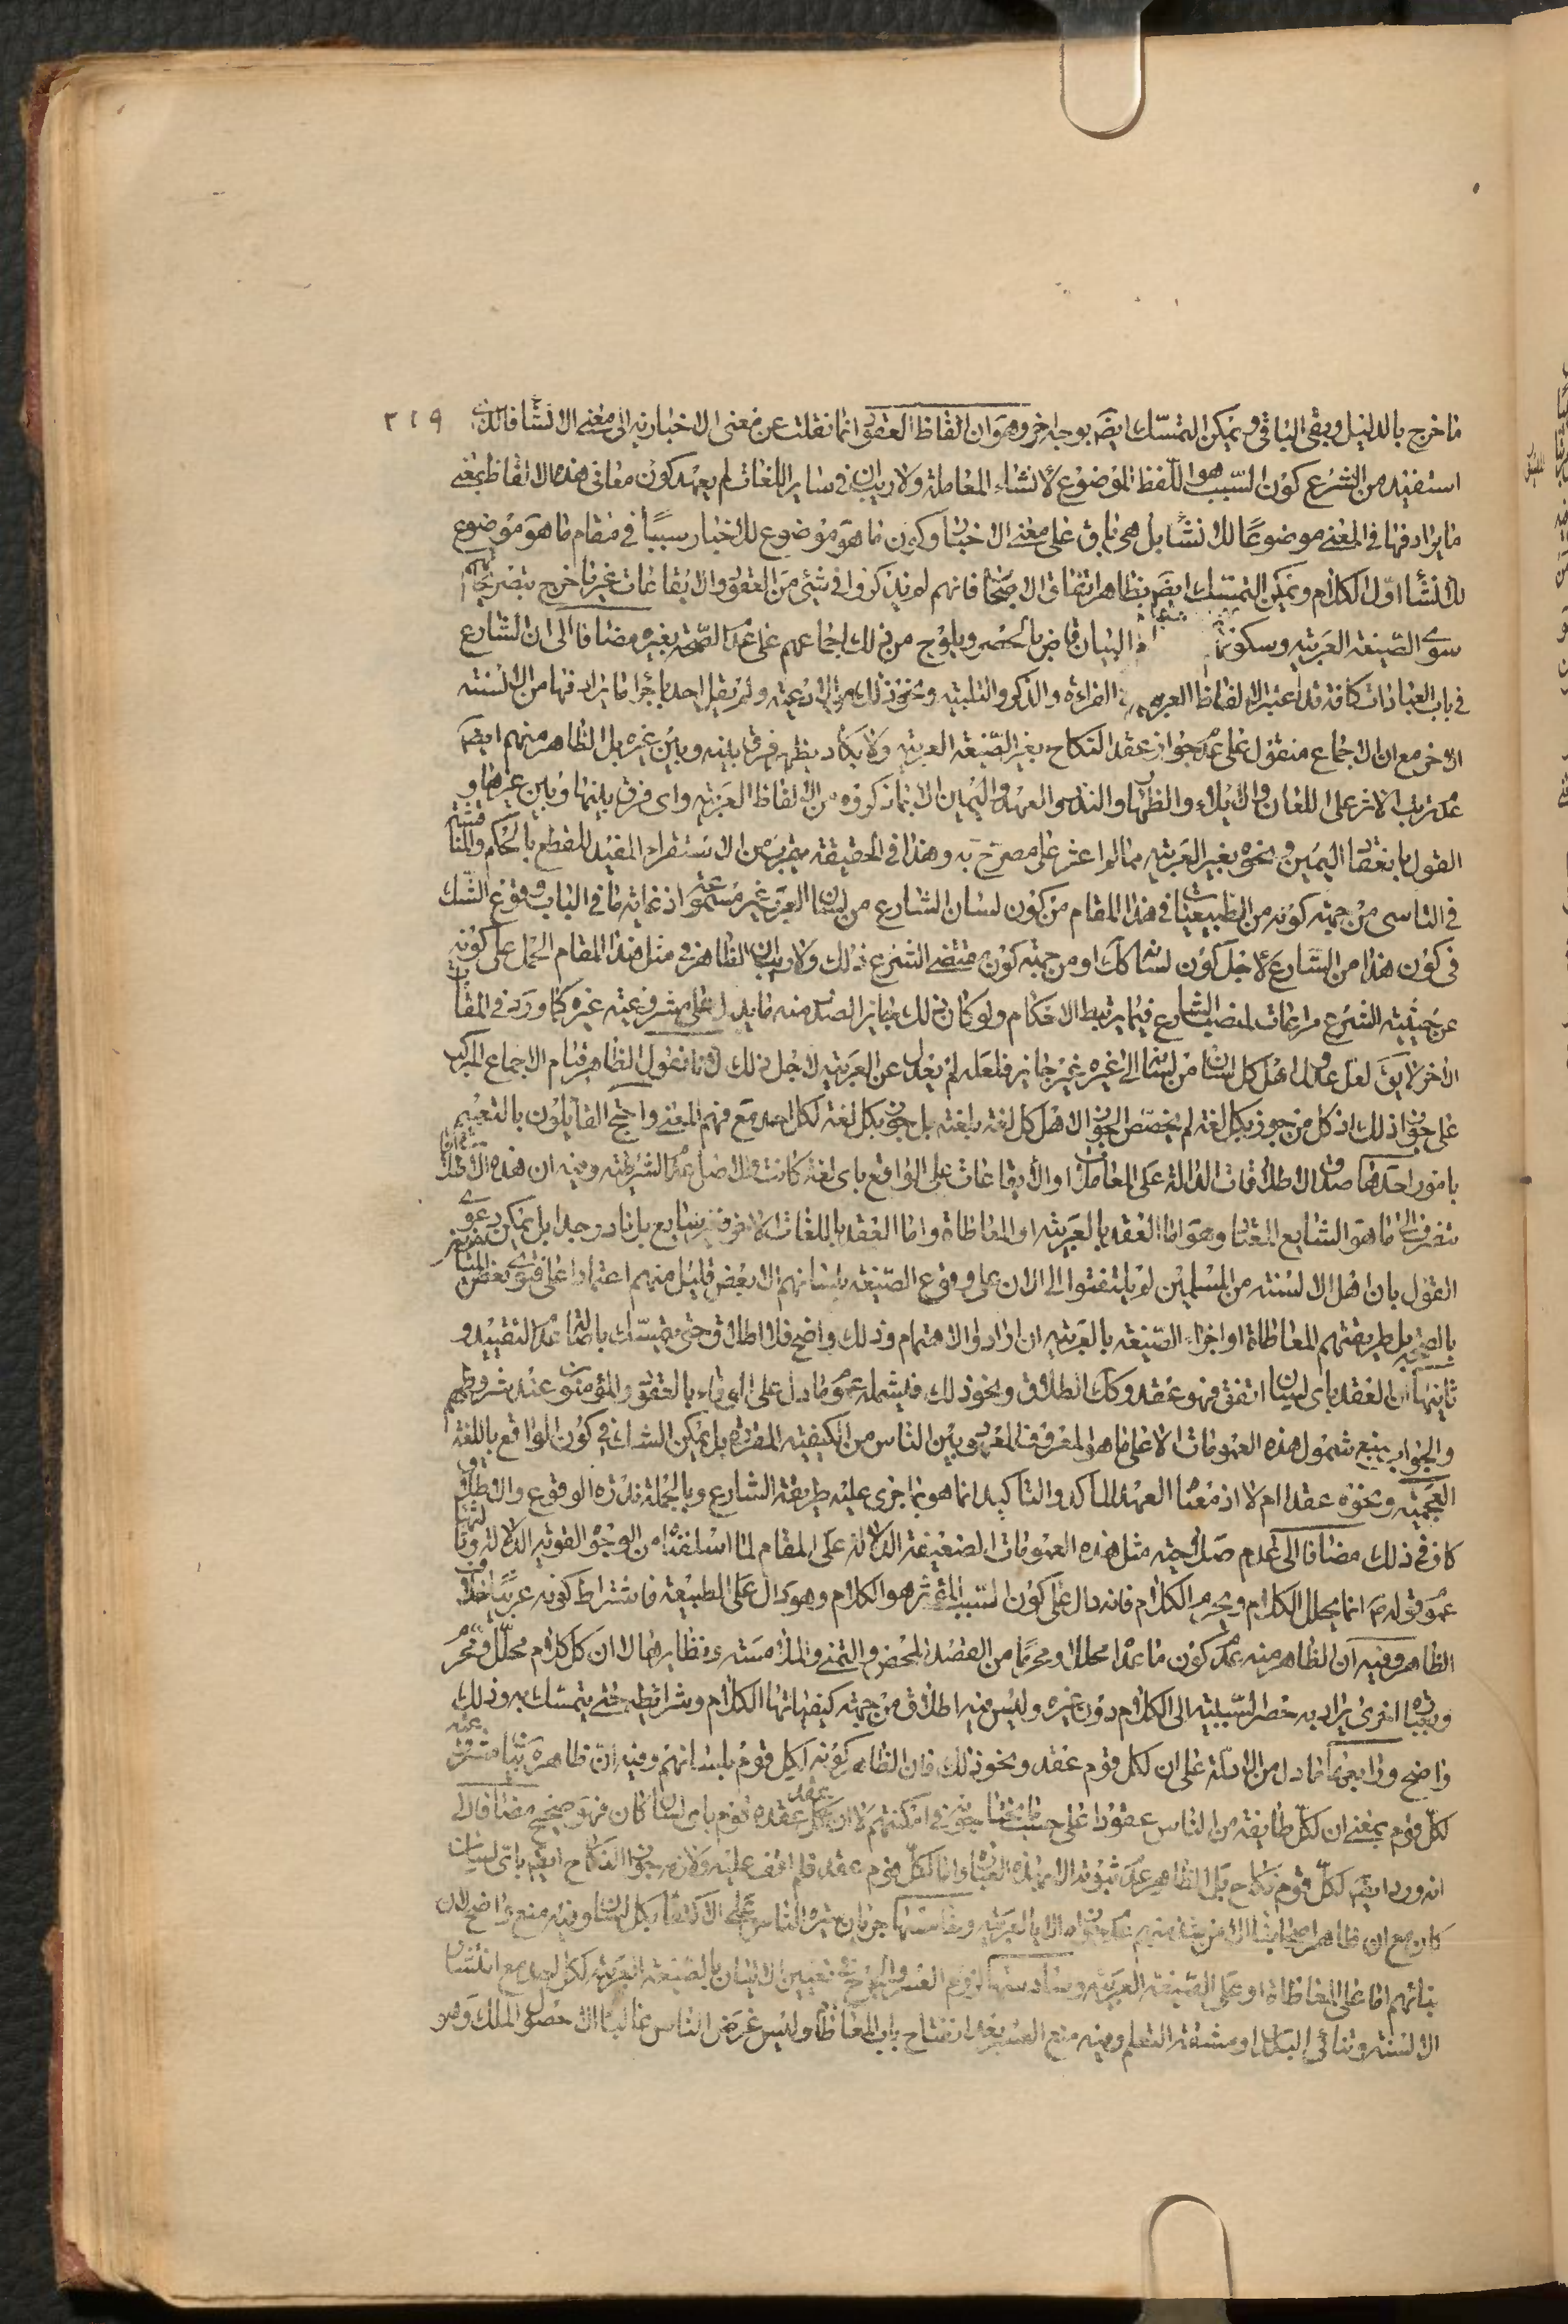 ما خرج بالدليل وبقى الباقى ويمكن التمسّك ايضَ بوجه اخر وهو ان الفاظ العقود انما نقلت عن معنى الاخبارية الى معنى الانشا فالذى ٢١٩
استفيد من الشرع كون السّبب هو اللّفظ الموضوع لانشاء المعاملة ولا ريب ان فى ساير اللغات لم يعهد كون معانى هذه الالفاظ بمعنى
ما يرادفها فى المعنى موضوعًا للانشا بل هى باق على معنى الاخبار وكون ما هو موضوع للاخبار سببًا فى مقام ما هو موضوع
للانشا اوّل الكلام ويمكن التمسّك ايضَ بظاهر اتفاق الاصحاب فانهم لم يذكروا فى شئ من العقود والايقاعات غير ما خرج بتصريحهم
سوى الصّيغة العربية وسكوتهم البيان قاض بالحصر ويلوح من ذلك اجماعهم على عدم الصّحة بغيره مضافا الى ان الشارع
فى باب العبادات كافة قد اعتبر الالفاظ العربية القراءة والذكر والتلبية ونحو ذلك من الادعية ولم يقل احد باجزا ما يرادفها من الالسنة
الاخر مع ان الاجماع منقول على عدم جواز عقد النكاح بغير الصّيغة العربية ولا يكاد يظهر فرق بينه وبين غيره بل الظاهر منهم ايضَ
عدم ترتب الاثر على اللعان والايلاء والظهار والنذر والعهد واليمين الا بما ذكروه من الالفاظ العربية واى فرق بينها وبين غيرها و
القول بانعقاد اليمين ونحوه بغير العربية مما لم اعثر على مصرّح به وهذا فى الحقيقة يقرب من الاستقراء المفيد للقطع بالحكم والمناقشة
فى التاسى من جهة كونه من الطبيعيات فى هذا المقام من كون لسان الشارع من لسان العرب غير مسموعة اذ غاية ما فى الباب وقوع الشّك
فى كون هذا من الشارع لاجل كون لسانه كك او من جهة كون مقتضى الشرع ذلك ولا ريب ان الظاهر فى مثل هذا المقام الحمل على كونه
عن حيثية الشرع مراعات لمنصب الشارع فيما يرتبط الاحكام ولو كان ذلك جايز الصدر منه ما يدل على مشروعية غيره كما ورد فى المقامات
الاخر لا يقَ لعل عدول اهل كل لسان من لسانه الى غيره غير جايز فلعله لم يعدل عن العربية لاجل ذلك لانا نقول الظاهر قيام الاجماع المركب
على جواز ذلك اذ كل من جوز بكل لغة لم يخصّص الجواز لاهل كل لغة بلغته بل جوز بكل لغة لكل احد مع فهم المعنى واحتج القايلون بالتعميم
بامور احدها صدق الاطلاقات الدالة على المعاملات او الايقاعات على الواقع باى لغة كانت والاصل عدم الشرطية وفيه ان هذه الاطلاقات
تنصرف الى ما هو الشايع المعتاد وهو اما العقد بالعربية او المعاطاة واما العقد باللغات الاخر فغير شايع بل نادر جدا بل يمكن دعوى
القول بان اهل الالسنة من المسلمين لم يلتفتوا الى الان على وقوع الصّيغة بلسانهم الا بعض قليل منهم اعتمادا على فتوى بعض
بالصحة بل طريقتهم المعاطاة او اجراء الصّيغة بالعربية ان ارادوا الاهتمام وذلك واضح فلا اطلاق حتى يتمسّك باصالة عدم التقييد و
ثانيها ان العقد باى لسان اتفق فهو عقد وكك الطلاق ونحو ذلك فيشمله عموم ما دل على الوفاء بالعقود والمؤمنون عند شروطهم
والجواب بمنع شمول هذه العمومات الا على ما هو المعروف المعهود بين الناس من الكيفية المقررة بل يمكن الشك فى كون الواقع باللغة
العجمية ونحوه عقدا ام لا اذ معناه العهد المأكد والتاكيد انما هو بما جرى عليه طريقة الشارع وبالجملة ندرة الوقوع والتطرق
كاف فى ذلك مضافا الى عدم صلوح مثل هذه العمومات الضعيفة الدلالة على المقام لما اسلفناه من الوجوه القوية الدلالة وثالثها
عموم قوله عَ انما يحلل الكلام ويحرم الكلام فانه دال على كون السّبب المؤثر هو الكلام وهو دال على الطبيعة فاشتراط كونه عربيًا خلاف
الظاهر وفيه ان الظاهر منه عدم كون ما عدا محللا ومحرمًا من القصد المحض والتمنى والملامسة ونظايرها لا ان كل كلام محلّل ومحرّم
وبعبارة اخرى يراد به حصر السّببية الى الكلام دون غيره وليس فيه اطلاق من جهة كيفياتها الكلام وشرايطه حتى يتمسّك به وذلك
واضح ورابعها ما دل من الادلة على ان لكل قوم عقد ونحو ذلك فان الظاهر كونه لكل قوم بلسانهم وفيه ان ظاهره
لكل قوم بمعنى ان لكل طايفة من الناس عقودا على حسب فى امكنتهم لا ان كل عقد عقده قوم باى لسان كان فهو صحيح مضافا الى
انه ورد ايضَ لكل قوم نكاح بل الظاهر عدم ثبوته الا بهذه العبارة واما لكل قوم عقد فلم اقف عليه ولازمه جواز النكاح ايضَ باى لسان
كان مع ان ظاهر اصحابنا الا من شذ منهم عدم جوازه الا بالعربية وخامسها جريان سيرة الناس على الاكتفا بكل لسان وفيه منع واضح لان
بنائهم اما على المعاطاة او على الصّيغة العربية وسادسها لزوم العسر والحرج فى تعيين الاتيان بالصّيغة العربية لكل احد مع انتشار
الالسنة وتنائى البلاد ومشقة التعلم وفيه منع العسر بعد انفتاح باب المعاطاة وليس غرض الناس غالبا الا حصول الملك وهو